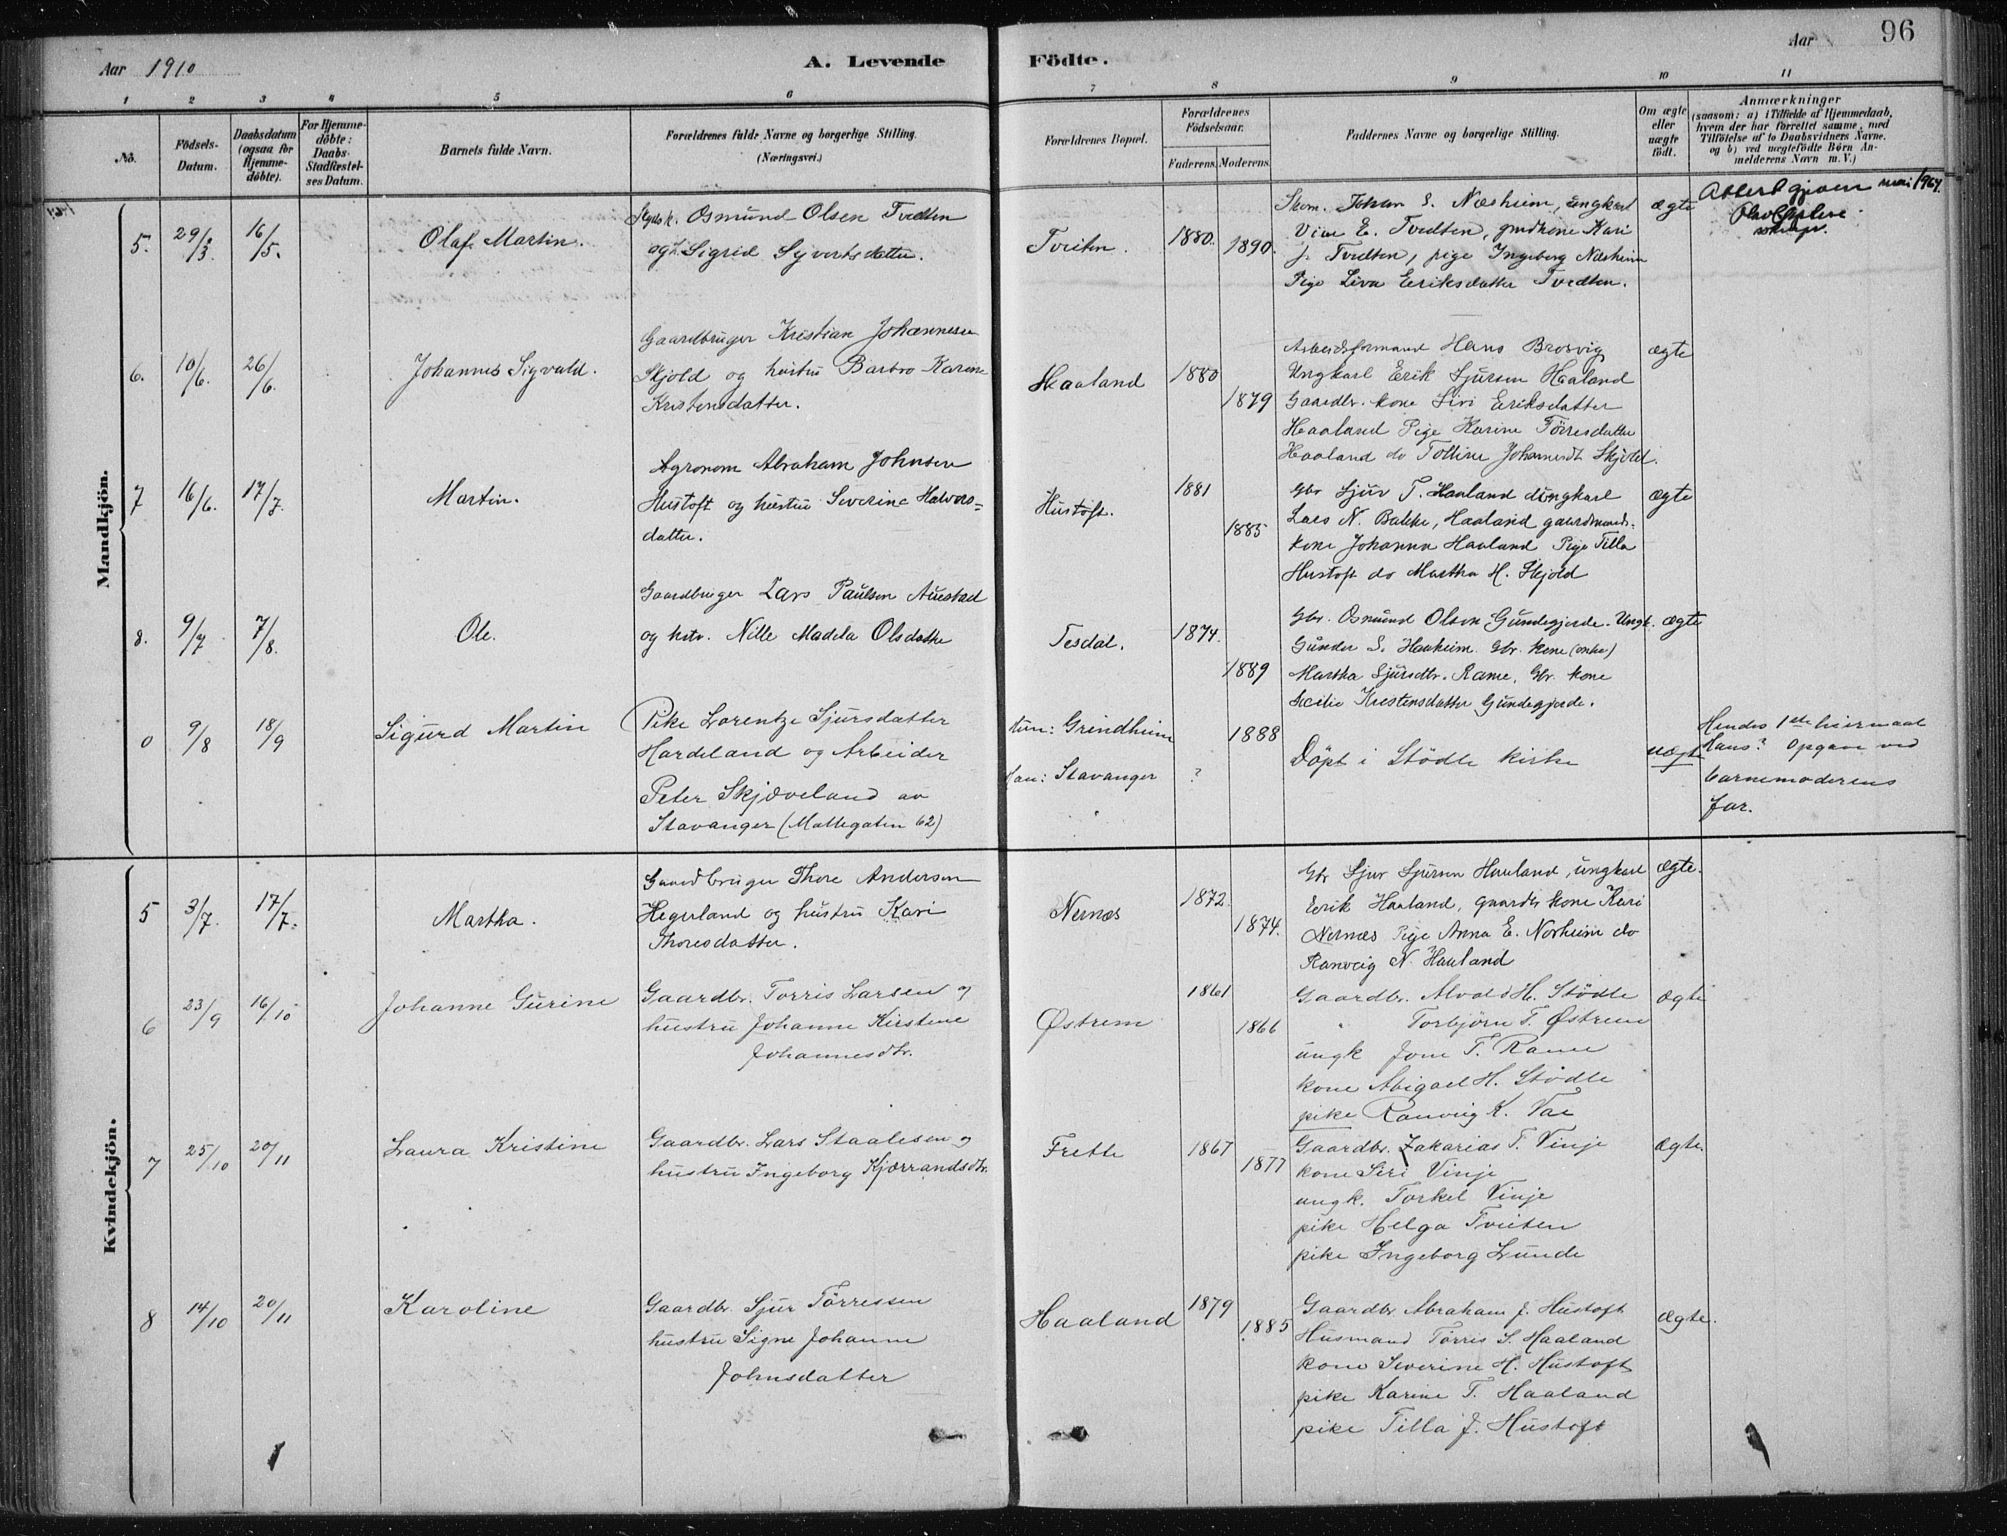 Aar 1910
A. Levende
Födte.
Aar
96
1 2 3 4 5 6 7 8 9 10 11
No.
Födsels-
Datum.
Daabsdatum
(ogsaa for
Hjemme-
döbte).
For Hjemme-
döbte:
Daabs-
Stadfæstel-
ses Datum.
Barnets fulde Navn.
Forældrenes fulde Navne og borgerlige Stilling.
(Næringsvei.)
Forældrenes Bopæl.
Forældrenes
Födselsaar.
Faderens.
Moderens.
Faddernes Navne og borgerlige Stilling.
Om ægte
eller
uægte
födt.
Anmærkninger
(saasom: a) i Tilfælde af Hjemmedaab,
hvem der har forrettet samme, med
Tilföielse af to Daabsvidners Navne,
og b) ved uægtefödte Börn An-
melderens Navn m. V.)
Mandkjön.
5. 29/3 16/5. Olaf Martin.
Osmund Olsen Tvedten
Sigrid Syvertsdatter.
Tveiten. 1880. 1890.
Johan S. Næsheim, ungkarl
E. Tvedten, Kari
Tvedten, pige Ingeborg Næsheim
Pige Liva Eriksdatter Tvedten.
ægte
mai 1964.
6. 10/6. 26/6. Johannes Sigvald.
Gaardbruger Kristian Johannesen
Skjold og hustru Barbro Karine
Kristensdatter.
Haaland 1880 1879
Arbeidsformand Hans Brosvig
Ungkarl Erik Sjursen Haaland
Gaardbr. kone Siri Eriksdatter
Haaland Pige Karine Törresdatter
Haaland do Johannesdt Skjold.
ægte
7 16/6. 17/7. Martin.
Agronom Abraham Johnsen
Hustoft og hustru Severine Halvors-
datter.
Hustoft. 1881 1885
Gbr Sjur T. Haaland ungkarl
Lars N. Bakke, Haaland gaardmands-
kone Johanna Haaland Pige Tilla
Hustoft do Martha H. Skjold
ægte
8. 9/7 7/8. Ole.
Gaardbruger Lars Paulsen Auestad
og hstr. Nille Madela Olsdatter
Tesdal. 1874. 1889
Gbr. Osmund Olson Gundegjerde. Ungk.
Gunder S. Hauheim. Gbr. kone (enke)
Martha Sjursdtr. Rame, Gbr. kone
Kristensdatter Gundegjerde.
ægte
9/8 18/9 Sigurd Martin
Pike Lorentze Sjursdatter
Hardeland og Arbeider
Peter Skjæveland av
Stavanger (Møllegaten 62)
Hun: Grindheim
Han: Stavanger
? 1888
Döpt i Stödle kirke
uægte
Hendes 1ste leiermaal
Hans? Opgave ved
barnemoderens
far.
Kvindekjön.
5 3/7. 17/7. Martha.
Gaardbruger Thore Andersen
Hegerland og hustru Kari
Thoresdatter.
Nernæs 1872. 1874.
Gbr Sjur Sjursen Haaland, ungkarl
Erik Haaland, gaardbr kone Kari
Nernæs Pige Anna E. Norheim do
Ranveig N. Haaland
ægte.
6 23/9 16/10 Johanne Gurine
Gaardbr. Torris Larsen og
hustru Johanne Kirstene
Johannesdtr.
Østrem 1861 1866
Gaardbr. Alvald H. Stödle
" Torbjörn T. Østrem
ungk Jone T. Rame
kone Abigael H. Stödle
pike Ranveig K. Vae
ægte
7 25/10 20/11 Laura Kristine
Gaardbr. Lars Staalesen og
hustru Ingeborg Kjærrandsdtr.
Frette 1867 1877
Gaardbr. Zakarias T. Vinje
kone Siri Vinje
ungk. Torkel Vinje
pike Helga Tveiten
pike Ingeborg Lunde
ægte.
8 14/10 20/11 Karoline
Gaardbr. Sjur Törressen
hustru Signe Johanne
Johnsdatter
Haaland 1879 1885
Gaardbr. Abraham J. Hustoft
Husmand Törris S. Haaland
kone Severine H. Hustoft
pike Karine T. Haaland
pike Tilla J. Hustoft
ægte.